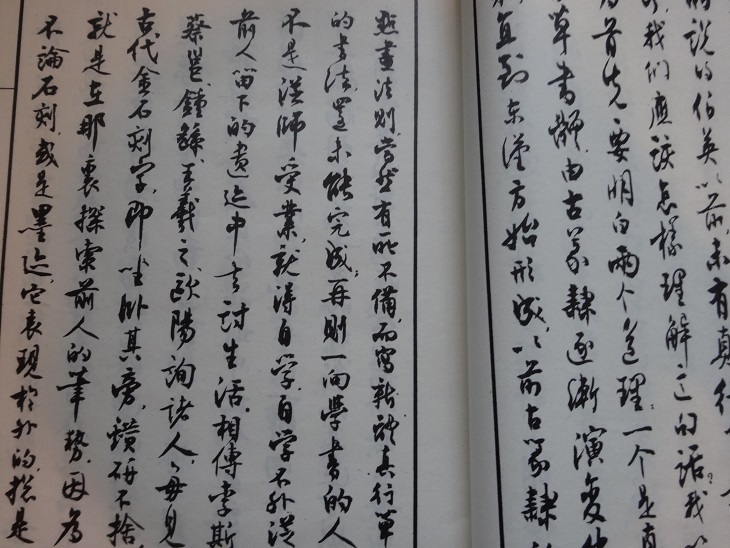 的說的伯英以前,未有真行
我们應該怎樣理解这句話?我
首先要明白兩个道理:一个是真
草書體,由古篆隸逐漸演變
直到東漢方始形成,以前古篆隸
點畫法則,當然有所不備,而寫新體真行草
的書法,還未能完成,再則一向學書的人
不是從師受業,就得自學,自學不外從
前人留下的遺迹中去討生活。相傳李斯
蔡邕、鍾繇、王羲之、歐陽詢諸人,每見
古代金石刻字,即坐卧其旁,鑽研不捨
就是在那裏探索前人的筆勢,因為
不論石刻,或是墨迹,它表現於外的,總是